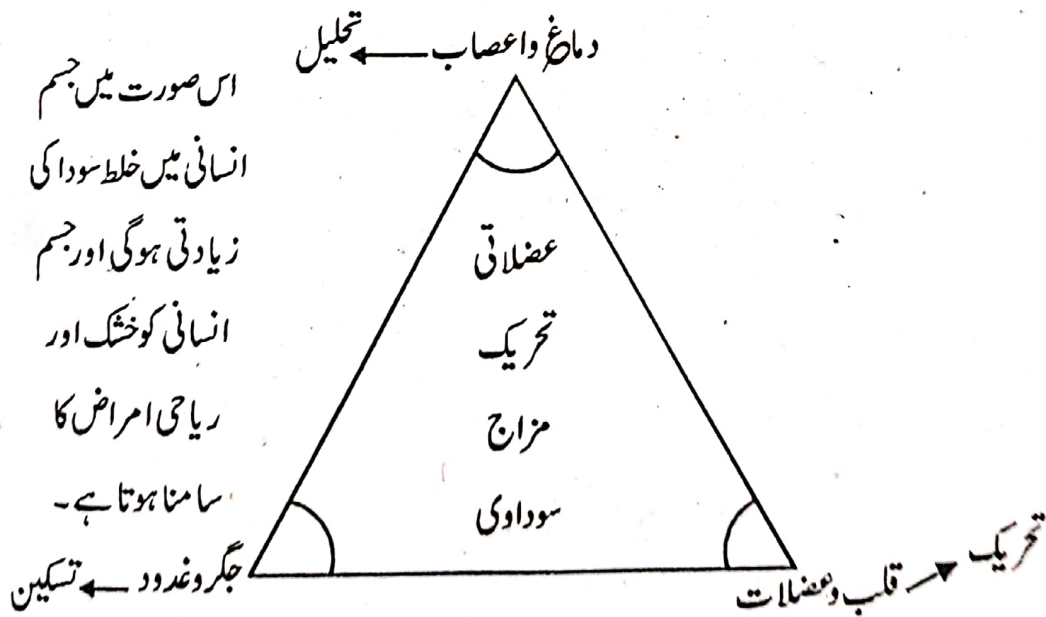 دماغ و اعصاب ← تحلیل
اس صورت میں جسم
انسانی میں خلط سودا کی
زیادتی ہوگی اور جسم
انسانی کو خشک اور
ریاحی امراض کا
سامنا ہوتا ہے۔
عضلاتی
تحریک
مزاج
سوداوی
جگر و غدود ← تسکین
قلب و عضلات → تحریک